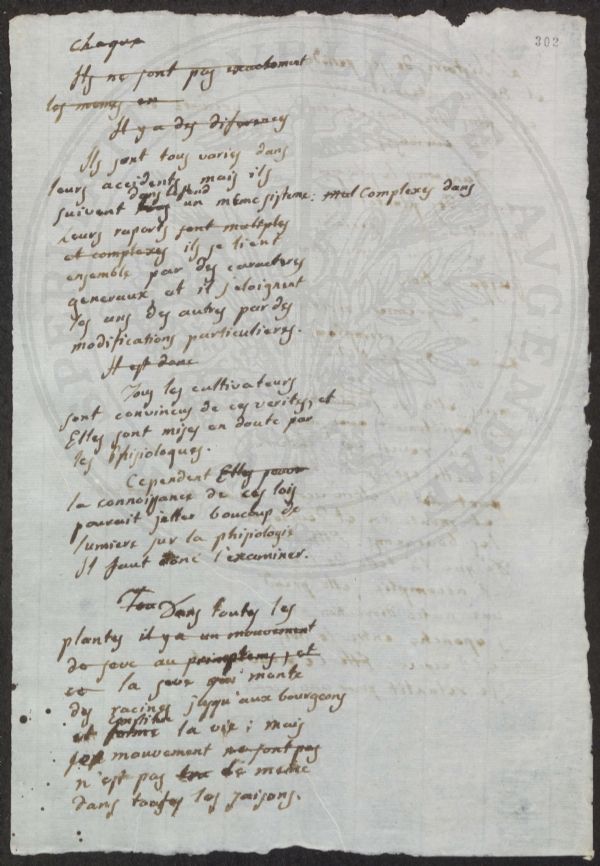 302
chaque
Ils ne sont pas exactement
les memes en
Il y a des diferences
Ils sont tous variés dans
leurs accidents mais ils
dans le fond
suivent tous un meme sisteme: mul Complexes dans
Leurs raports sont multiples
et complexes ils se lient
ensemble par des caracteres
generaux et il s'eloignent
les uns des autres par des
modifications particulieres.
Il est donc
Tous les cultivateurs
sont convincus de ces verités, et
Elles sont mises en doute par
les Phisiologues.
Cependent Elles pouvr
la connoissance de ces lois
pourait jetter boucoup de
lumiere sur la phisiologie
Il faut donc l'examiner.
Tou Dans toutes les
plantes il y a un mouvement
de seve au primptems, et
ce la seve qui monte
des racines jusqu'aux bourgeons
constitue
et forme la vie; mais
mouvement ne sont pas
n'est pas le meme
dans toutes les saisons.